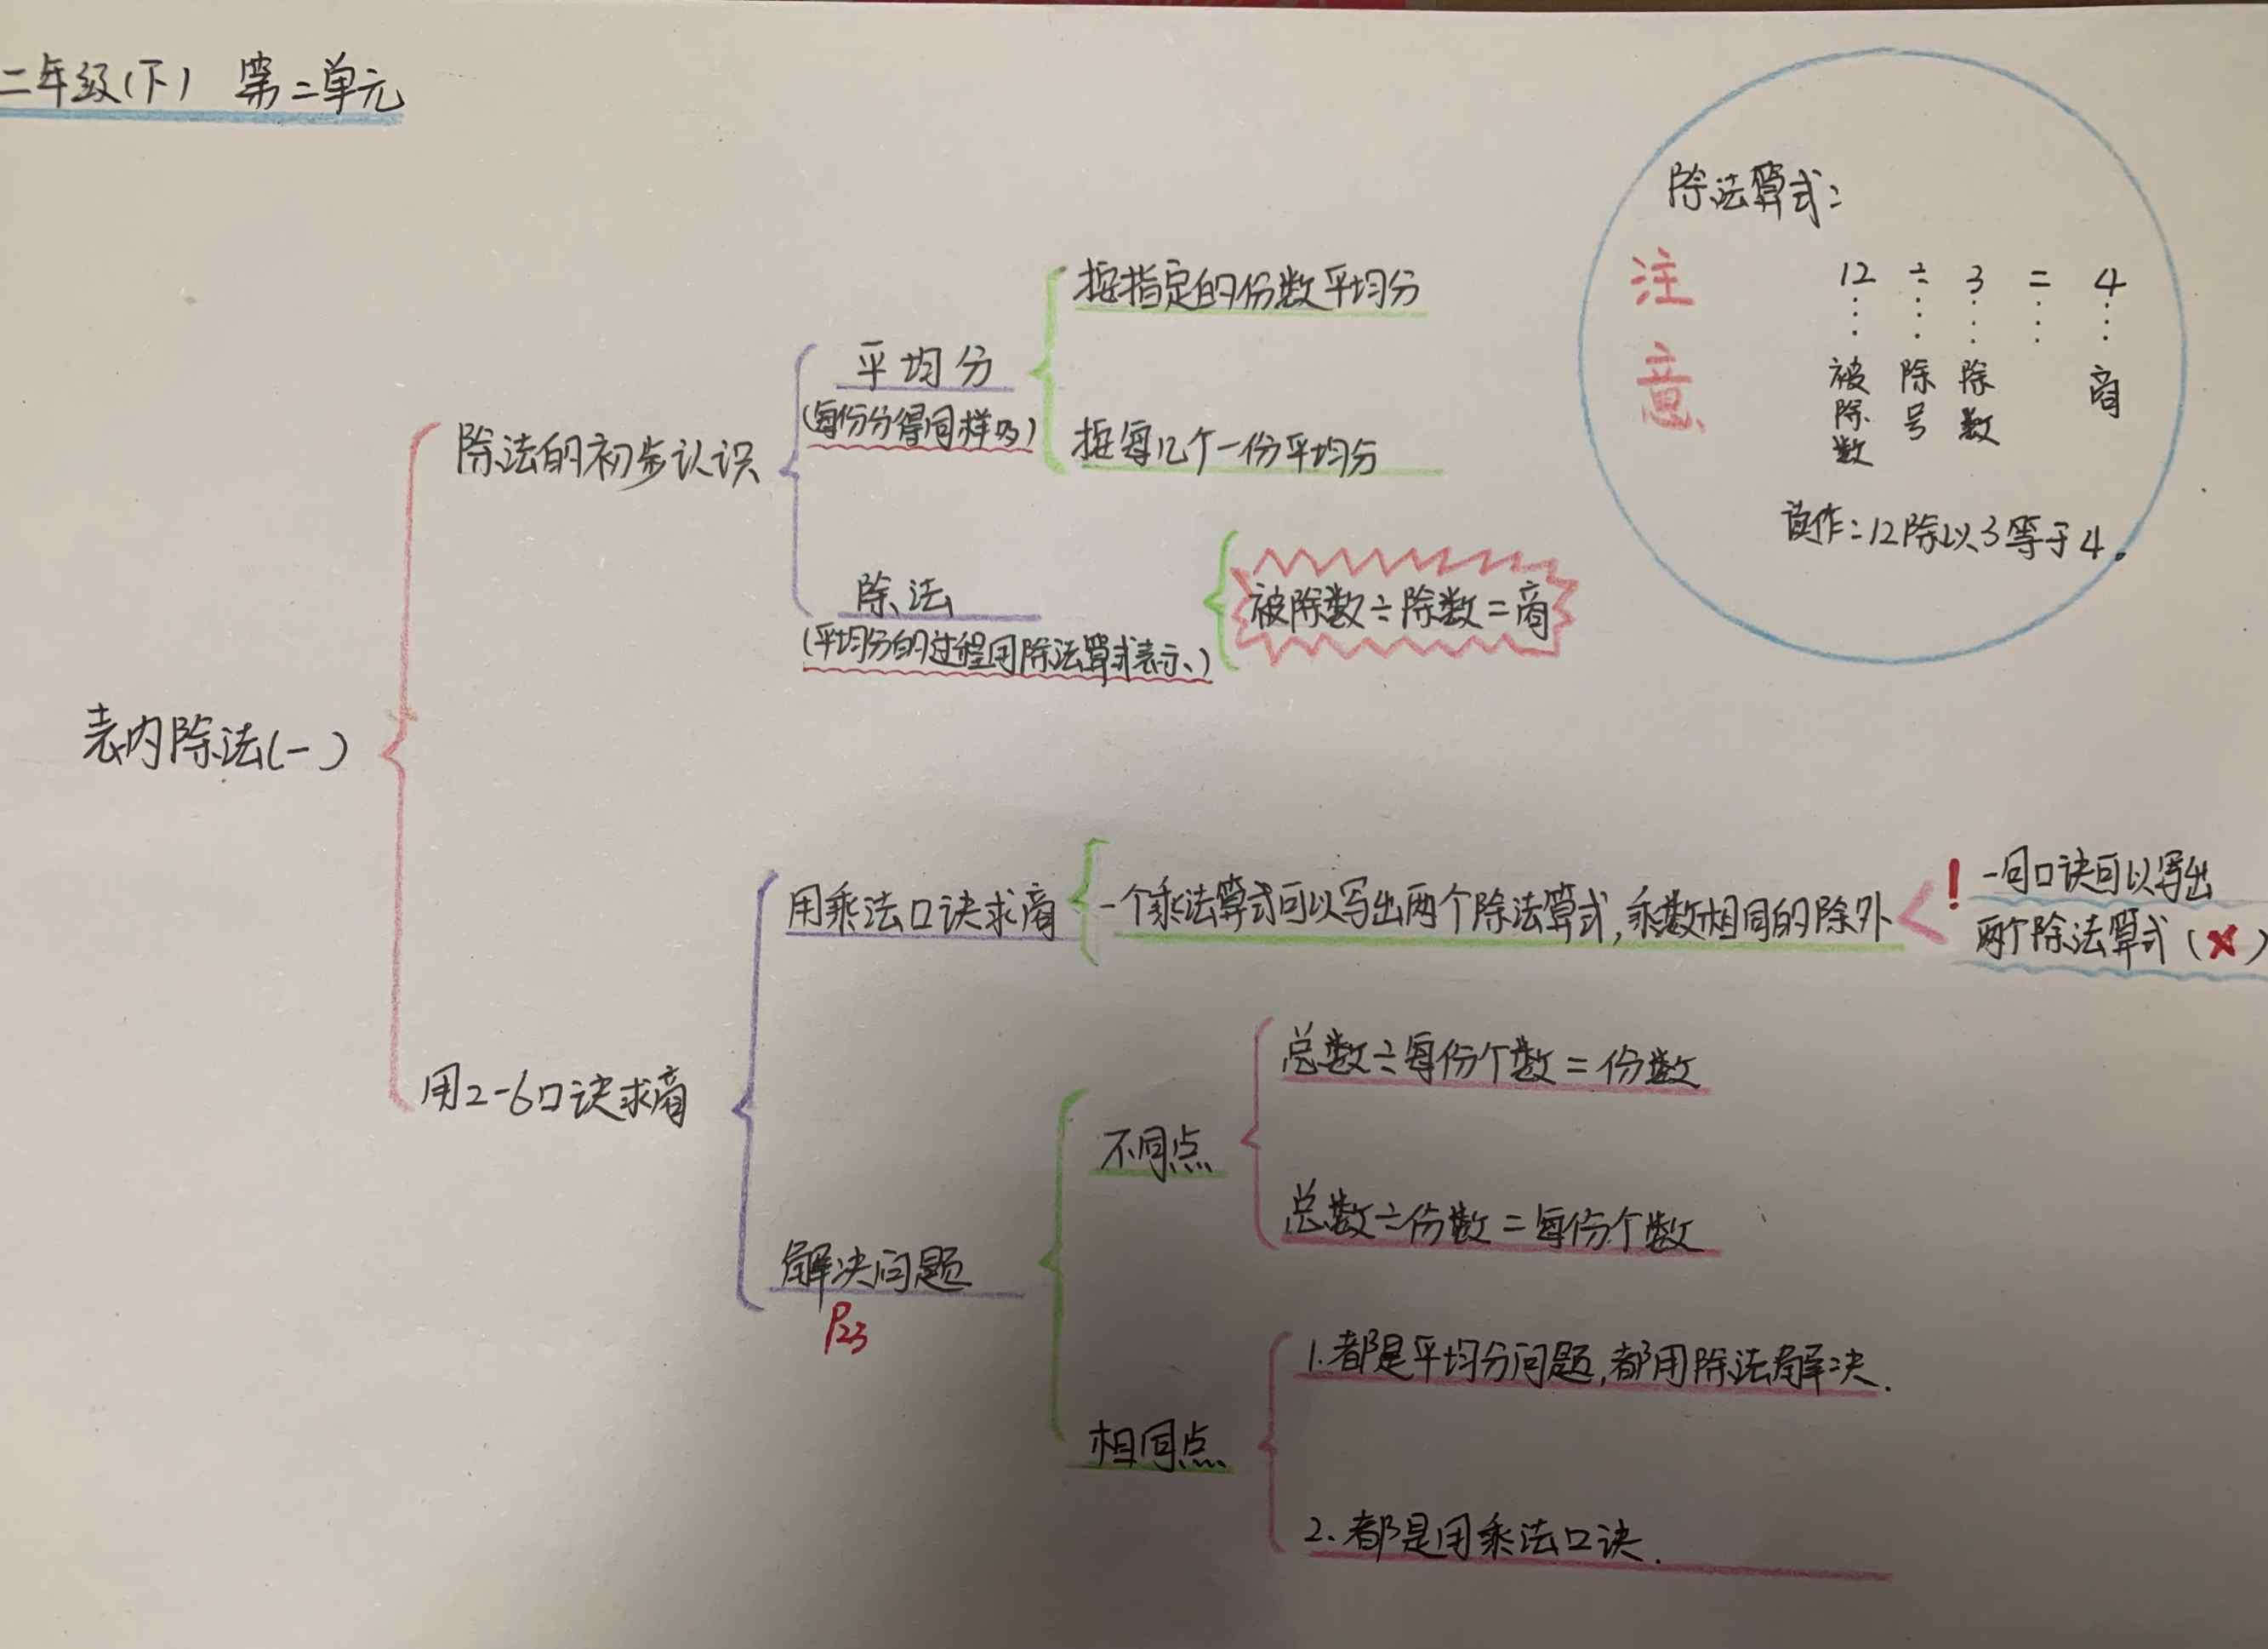 二年级(下) 第二单元
除法算式:
注意
12 ÷ 3 = 4
被除数 除号 除数 商
读作:12除以3等于4。
表内除法(一)
除法的初步认识
平均分
(每份分得同样多)
按指定的份数平均分
按每几个一份平均分
除法
(平均分的过程用除法算式表示、)
被除数÷除数=商
用2-6口诀求商
用乘法口诀求商
一个乘法算式可以写出两个除法算式,乘数相同的除外
! 一句口诀可以写出
两个除法算式(×)
解决问题
P23
不同点
总数÷每份个数=份数
总数÷份数=每份个数
相同点
1.都是平均分问题,都用除法解决.
2.都是用乘法口诀.